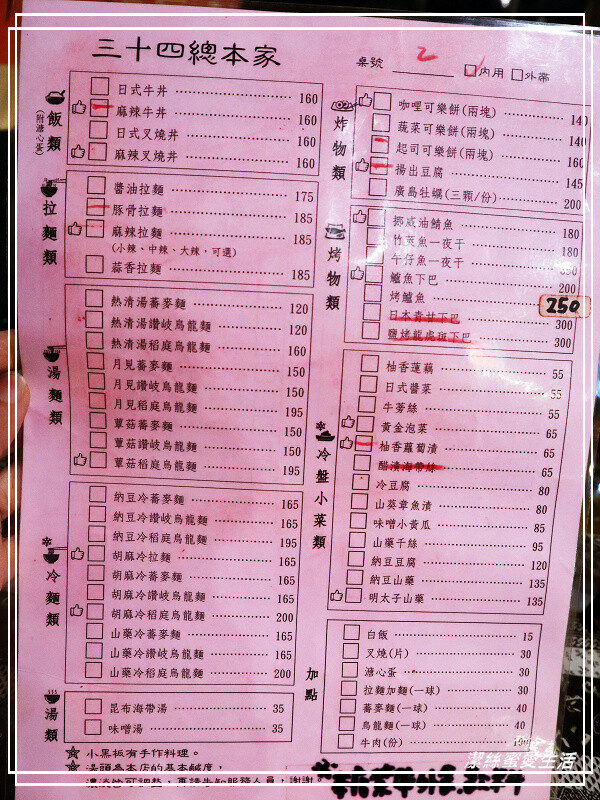 三十四總本家
桌號 2 內用 外帶
飯類
(附溏心蛋)
日式牛丼 160
麻辣牛丼 160
日式叉燒丼 160
麻辣叉燒丼 160
拉麵類
醬油拉麵 175
豚骨拉麵 185
麻辣拉麵 185
(小辣、中辣、大辣,可選)
蒜香拉麵 185
湯麵類
熱清湯蕎麥麵 120
熱清湯讚岐烏龍麵 120
熱清湯稻庭烏龍麵 160
月見蕎麥麵 150
月見讚岐烏龍麵 150
月見稻庭烏龍麵 195
蕈菇蕎麥麵 150
蕈菇讚岐烏龍麵 150
蕈菇稻庭烏龍麵 195
冷麵類
納豆冷蕎麥麵 165
納豆冷讚岐烏龍麵 165
納豆冷稻庭烏龍麵 195
胡麻冷拉麵 165
胡麻冷蕎麥麵 165
胡麻冷讚岐烏龍麵 165
胡麻冷稻庭烏龍麵 200
山藥冷蕎麥麵 165
山藥冷讚岐烏龍麵 165
山藥冷稻庭烏龍麵 200
湯類
昆布海帶湯 35
味噌湯 35
小黑板有手作料理。
湯頭為本店的基本鹹度,
濃淡皆可調整,再請告知服務人員,謝謝。
炸物類
咖哩可樂餅(兩塊) 140
蔬菜可樂餅(兩塊) 140
起司可樂餅(兩塊) 160
揚出豆腐 145
廣島牡蠣(三顆/份) 200
烤物類
挪威油鯖魚 180
竹筴魚一夜干 180
午仔魚一夜干
鱸魚下巴 200
烤鱸魚 250
日本青甘下巴 300
鹽烤龍虎斑下巴 300
冷盤小菜類
柚香蓮藕 55
日式醬菜 55
牛蒡絲 55
黃金泡菜 65
柚香蘿蔔漬 65
醋漬海帶絲 65
冷豆腐 80
山葵章魚漬 80
味噌小黃瓜 85
山藥千絲 95
納豆豆腐 120
納豆山藥 135
明太子山藥 135
加點
白飯 15
叉燒(片) 30
溏心蛋 30
拉麵加麵(一球) 30
蕎麥麵(一球) 40
烏龍麵(一球) 40
牛肉(份) 100
潔絲蜜愛生活